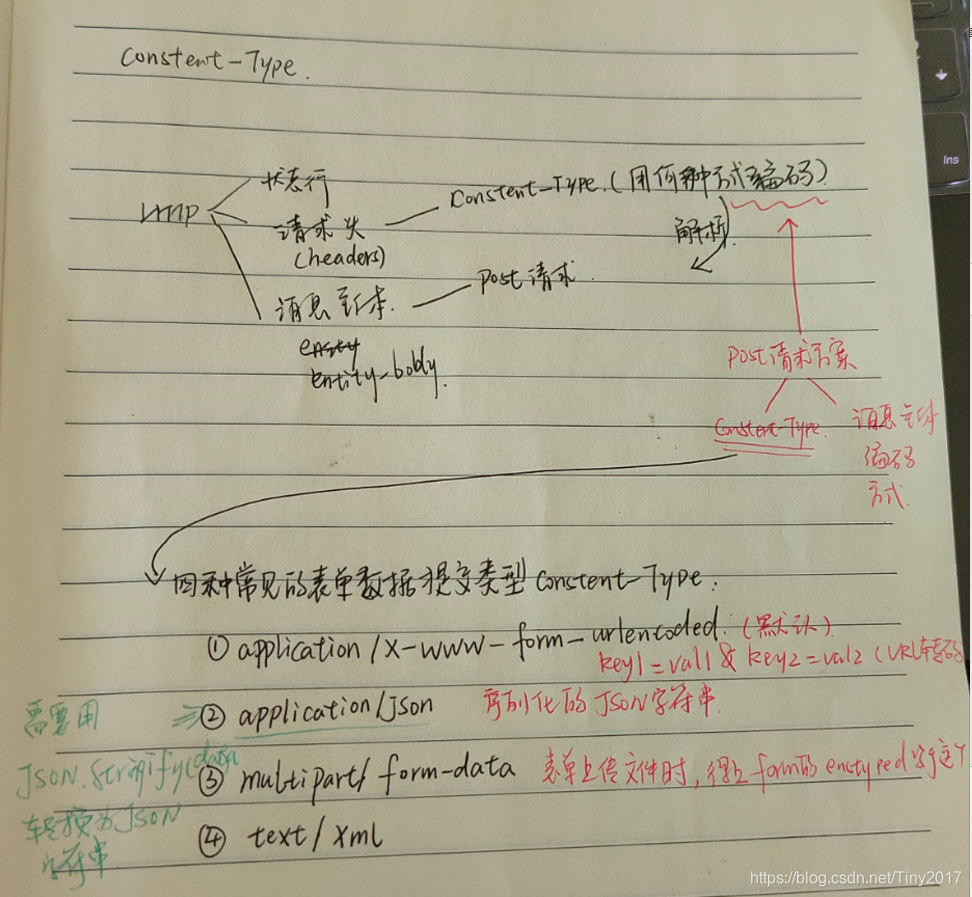 Constent-Type.
状态行
Constent-Type.(用何种方式编码)
http
请求头
解析
(headers)
Post请求.
消息主体.
ensty
entity-body.
Post请求方案
Constent-Type.
消息主体
编码
方式.
四种常见的表单数据提交类型 Constent-Type.
① application/x-www-form-urlencoded. (默认)
key1=val1 & key2=val2 (URL转码
需要用
② application/json
序列化的JSON字符串.
JSON.Stringify(data
③ multipart/ form-data
表单上传文件时,得让form的 enctyped 等于这个
转换为JSON
字符串.
④ text/xml
Ins
https://blog.csdn.net/Tiny2017